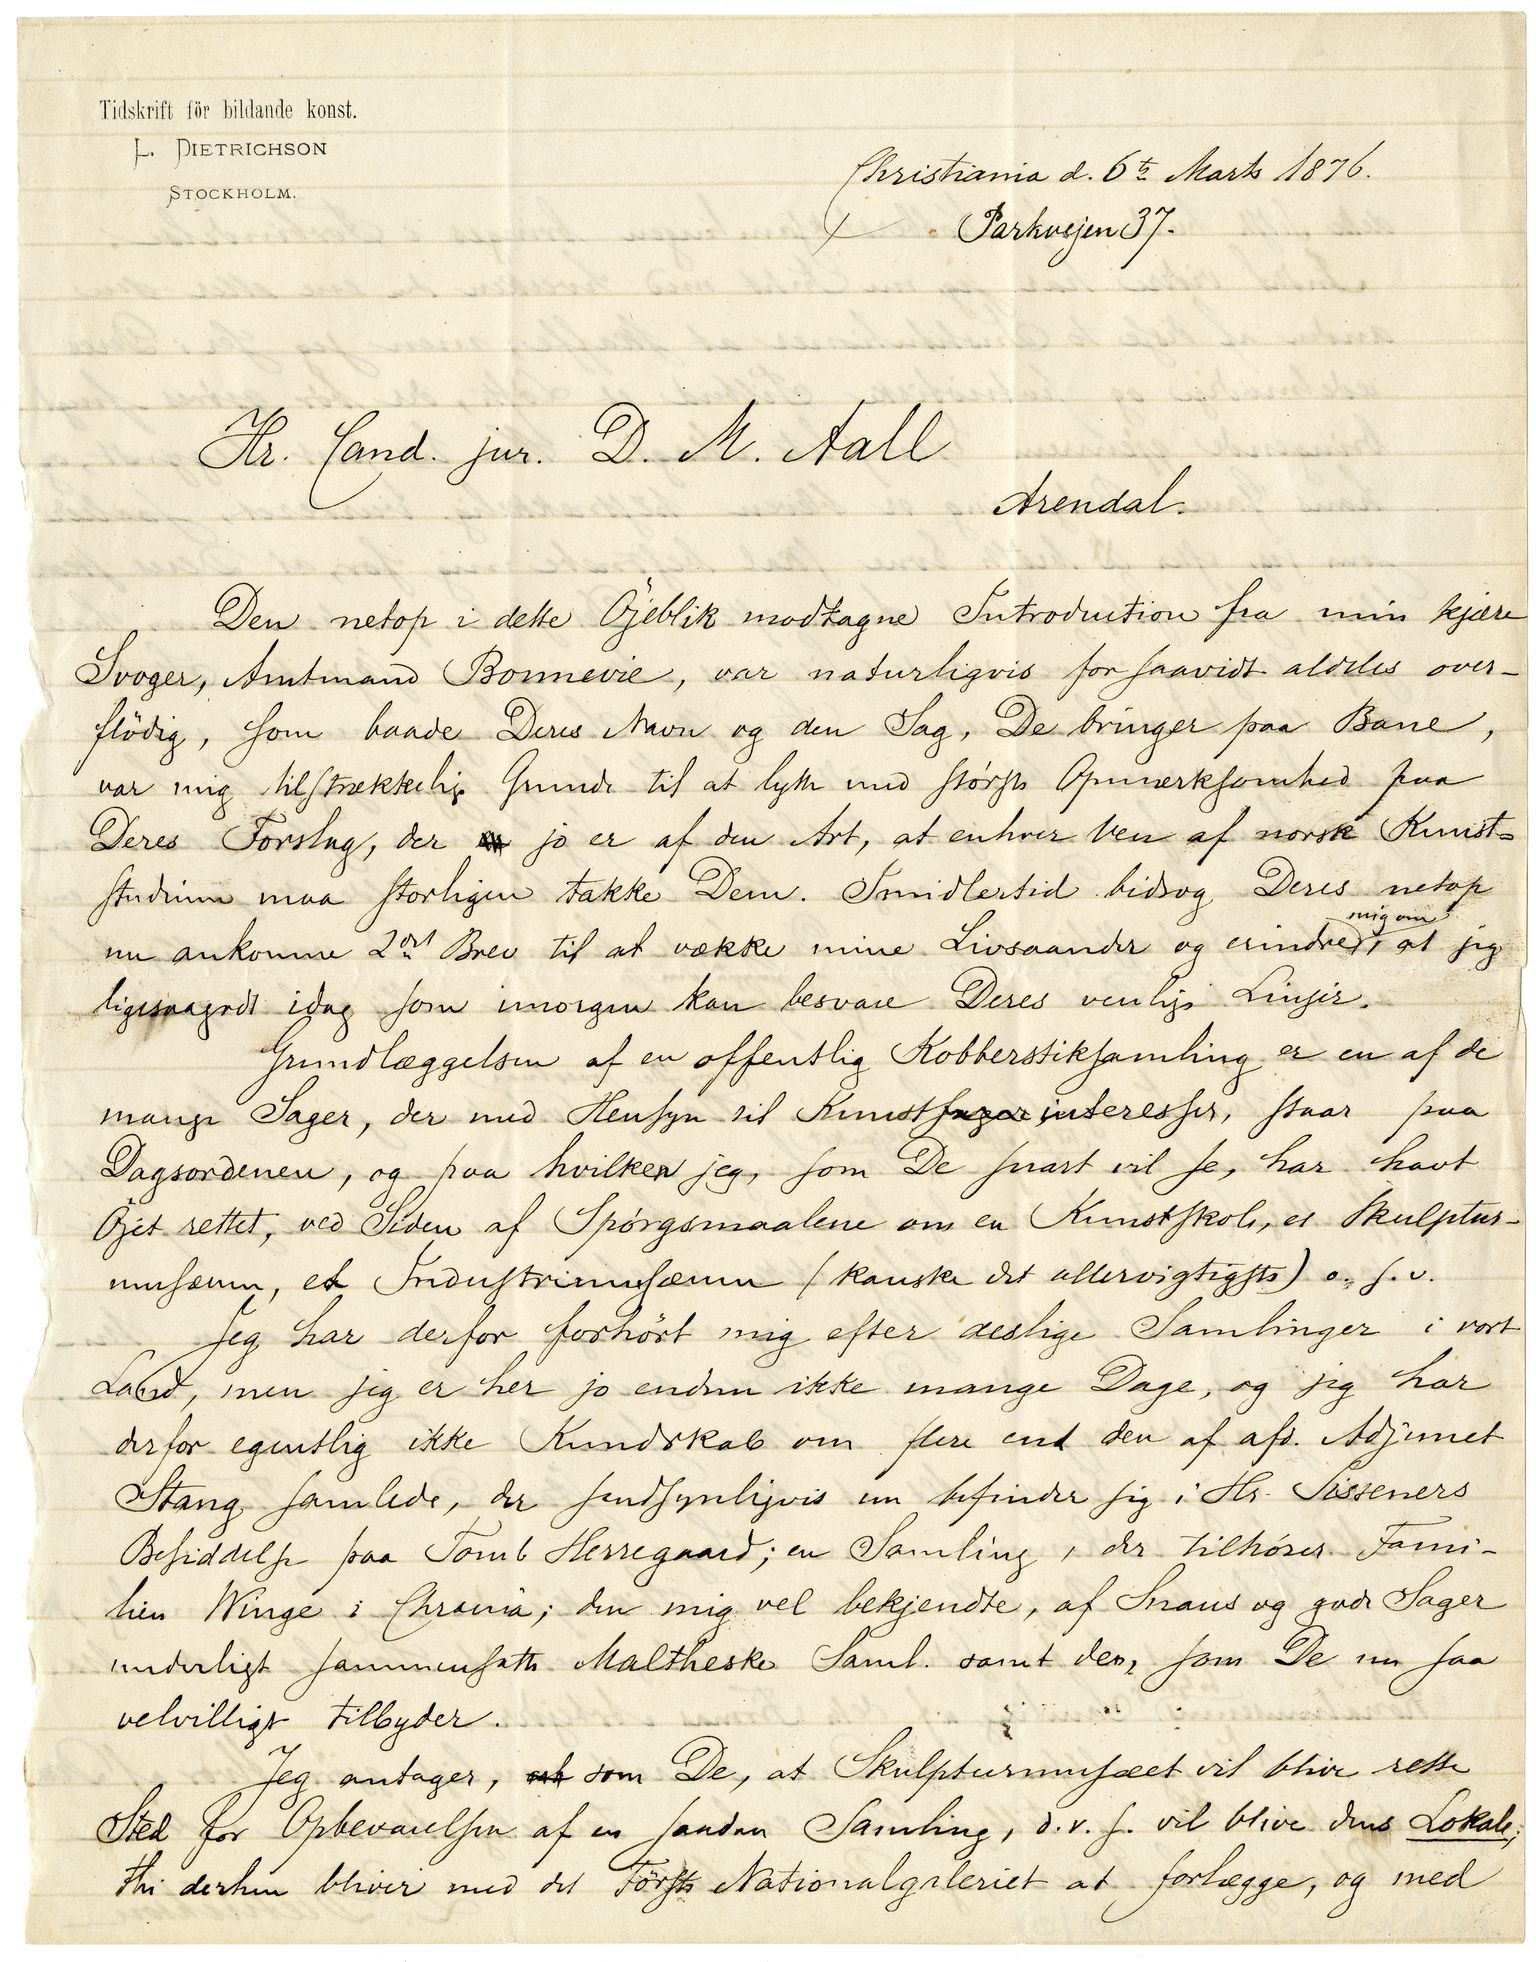 Tidskrift för bildande konst.
L. DIETRICHSON
STOCKHOLM.
Christiania d. 6te Marts 1876.
Parkvejen 37.
Hr. Cand. jur. D. M. Aall
Arendal.
Den netop i dette Öjeblik modtagne Introduction fra min kjære
Svoger, Amtmand Bonnevie, var naturligvis forsaavidt aldeles over-
flödig, som baade Deres Navn og den Sag, De bringer paa Bane,
var mig tilstrækkelig Grund til at lytte med störste Opmærksomhed paa
Deres Forslag, der jo er af den Art, at enhver Ven af norsk Kunst-
studium maa storligen takke Dem. Imidlertid bidrog Deres netop
nu ankomne 2det Brev til at vække mine Livsaander og erindre mig om, at jeg
ligesaagodt idag som imorgen kan besvare Deres venlige Linjer.
Grundlæggelsen af en offentlig Kobberstiksamling er en af de
mange Sager, der med Hensyn til Kunstinteresser, staar paa
Dagsordenen, og paa hvilken jeg, som De snart vil se, har havt
Öjet rettet, ved Siden af Spörgsmaalene om en Kunstskole, et Skulptur-
musæum, et Industrimusæum (kanske det allervigtigste) o. s. v.
Jeg har derfor forhört mig efter deslige Samlinger i vort
Land, men jeg er her jo endnu ikke mange Dage, og jeg har
derfor egentlig ikke Kundskab om flere end den af afd. Adjunct
Stang samlede, der sandsynligvis nu befinder sig i Hr. Sisseners
Besiddelse paa Tomb Herregaard; en Samling, der tilhörer Fami-
lien Winge i Chrania; den mig vel bekjendte, af Snaus og gode Sager
underligt sammensatte Maltheske Saml. samt den, som De nu saa
velvilligt tilbyder.
Jeg antager, som De, at Skulpturmusæet vil blive rette
Sted for Opbevarelsen af en saadan Samling, d. v. s. vil blive dens Lokale;
thi derhen bliver med det Förste Nationalgaleriet at forlægge, og med